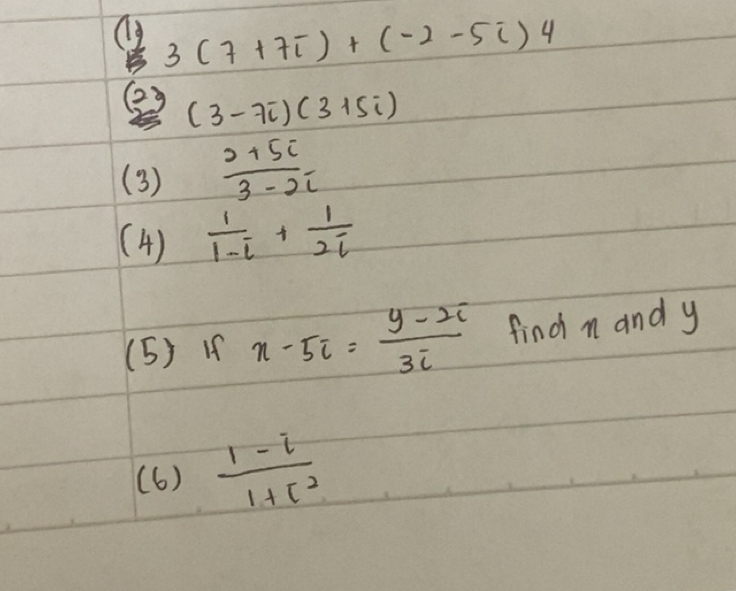 (1) 3 (7 + 7i) + (-2 - 5i) 4
(2) (3 - 7i) (3 + 5i)
(3) 2 + 5i / 3 - 2i
(4) 1 / 1 - i + 1 / 2i
(5) If x - 5i = y - 2i / 3i find x and y
(6) 1 - i / 1 + i²